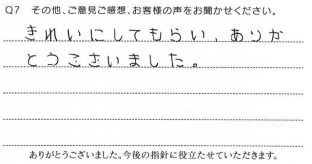 Q7 その他、ご意見ご感想、お客様の声をお聞かせください。
きれいにしてもらい、ありか
とうこさいました。
ありがとうございました。今後の指針に役立たせていただきます。